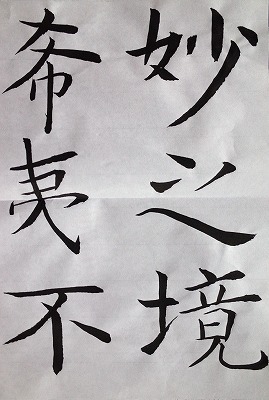 妙之境
希夷不